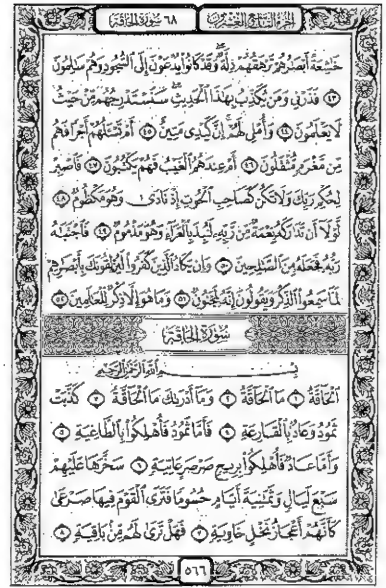 الجزء التاسع والعشرون ٦٨ سورة الحاقة
خَٰشِعَةً أَبْصَٰرُهُمْ تَرْهَقُهُمْ ذِلَّةٌ وَقَدْ كَانُوا۟ يُدْعَوْنَ إِلَى ٱلسُّجُودِ وَهُمْ سَٰلِمُونَ
٤٣ فَذَرْنِى وَمَن يُكَذِّبُ بِهَٰذَا ٱلْحَدِيثِ سَنَسْتَدْرِجُهُم مِّنْ حَيْثُ
لَا يَعْلَمُونَ ٤٤ وَأُمْلِى لَهُمْ إِنَّ كَيْدِى مَتِينٌ ٤٥ أَمْ تَسْـَٔلُهُمْ أَجْرًا فَهُم
مِّن مَّغْرَمٍ مُّثْقَلُونَ ٤٦ أَمْ عِندَهُمُ ٱلْغَيْبُ فَهُمْ يَكْتُبُونَ ٤٧ فَٱصْبِرْ
لِحُكْمِ رَبِّكَ وَلَا تَكُن كَصَاحِبِ ٱلْحُوتِ إِذْ نَادَىٰ وَهُوَ مَكْظُومٌ ٤٨
لَّوْلَآ أَن تَدَٰرَكَهُۥ نِعْمَةٌ مِّن رَّبِّهِۦ لَنُبِذَ بِٱلْعَرَآءِ وَهُوَ مَذْمُومٌ ٤٩ فَٱجْتَبَٰهُ
رَبُّهُۥ فَجَعَلَهُۥ مِنَ ٱلصَّٰلِحِينَ ٥٠ وَإِن يَكَادُ ٱلَّذِينَ كَفَرُوا۟ لَيُزْلِقُونَكَ بِأَبْصَٰرِهِمْ
لَمَّا سَمِعُوا۟ ٱلذِّكْرَ وَيَقُولُونَ إِنَّهُۥ لَمَجْنُونٌ ٥١ وَمَا هُوَ إِلَّا ذِكْرٌ لِّلْعَٰلَمِينَ ٥٢
سُورَةُ ٱلْحَاقَّةِ
بِسْمِ ٱللَّهِ ٱلرَّحْمَٰنِ ٱلرَّحِيمِ
ٱلْحَآقَّةُ ١ مَا ٱلْحَآقَّةُ ٢ وَمَآ أَدْرَىٰكَ مَا ٱلْحَآقَّةُ ٣ كَذَّبَتْ
ثَمُودُ وَعَادٌۢ بِٱلْقَارِعَةِ ٤ فَأَمَّا ثَمُودُ فَأُهْلِكُوا۟ بِٱلطَّاغِيَةِ ٥
وَأَمَّا عَادٌ فَأُهْلِكُوا۟ بِرِيحٍ صَرْصَرٍ عَاتِيَةٍ ٦ سَخَّرَهَا عَلَيْهِمْ
سَبْعَ لَيَالٍ وَثَمَٰنِيَةَ أَيَّامٍ حُسُومًا فَتَرَى ٱلْقَوْمَ فِيهَا صَرْعَىٰ
كَأَنَّهُمْ أَعْجَازُ نَخْلٍ خَاوِيَةٍ ٧ فَهَلْ تَرَىٰ لَهُم مِّنۢ بَاقِيَةٍ ٨
٥٦٦